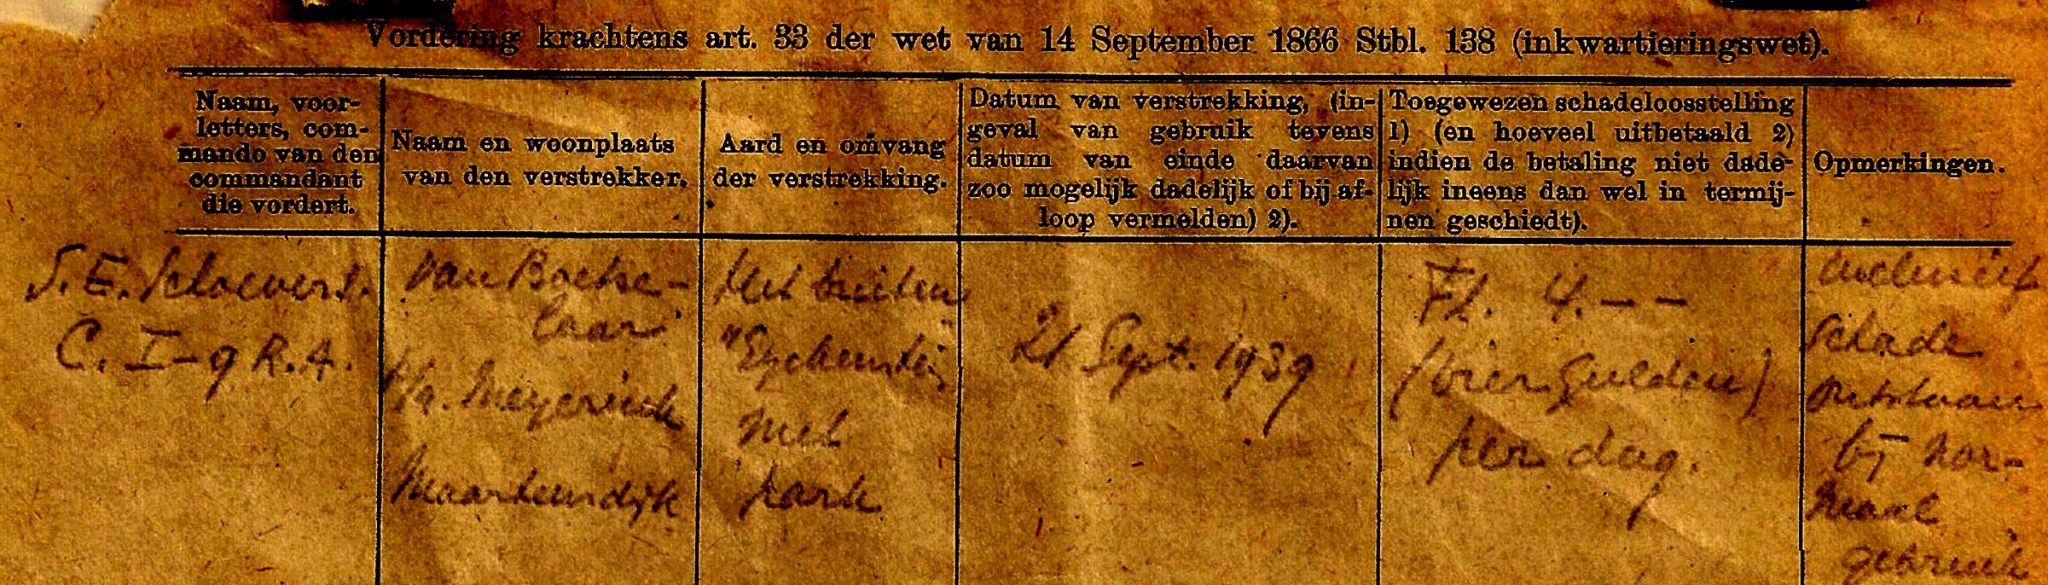 Vordering krachtens art. 33 der wet van 14 September 1866 Stbl. 138 (inkwartieringswet).
Naam, voor-
letters, com-
mando van den
commandant
die vordert.
Naam en woonplaats
van den verstrekker.
Aard en omvang
der verstrekking.
Datum van verstrekking, (in-
geval van gebruik tevens
datum van einde daarvan
zoo mogelijk dadelijk of bij af-
loop vermelden) 2).
Toegewezen schadeloosstelling
1) (en hoeveel uitbetaald 2)
indien de betaling niet dade-
lijk ineens dan wel in termij-
nen geschiedt).
Opmerkingen.
S. E. Schoevers.
C. I-9 R.A.
van Boetse-
laar
p/a. Meyerink
Maartensdijk
Het buiten
"Eyckenstein
met
park
21 Sept. 1939
Fl. 4.--
(vier gulden)
per dag.
schade
ontstaan
bij nor-
maal
gebruik